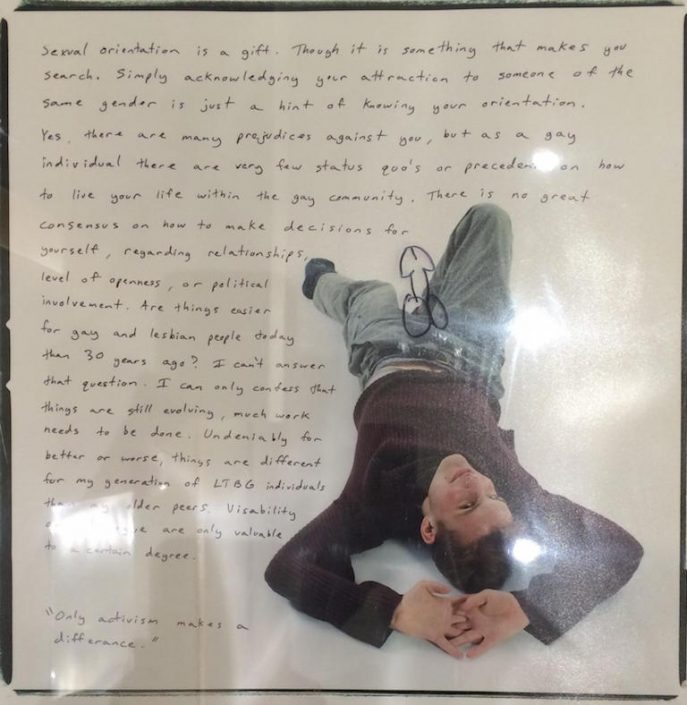 Sexual orientation is a gift. Though it is something that makes you
search. Simply acknowledging your attraction to someone of the
same gender is just a hint of knowing your orientation.
Yes, there are many prejudices against you, but as a gay
individual there are very few status quo's or on how
to live your life within the gay community. There is no great
consensus on how to make decisions for
yourself, regarding relationships,
level of openness, or political
involvement. Are things easier
for gay and lesbian people today
than 30 years ago? I can't answer
that question. I can only confess that
things are still evolving, much work
needs to be done. Undeniably for
better or worse, things are different
for my generation of LTBG individuals
than my older peers. Visability
are only valuable
to a certain degree.
"Only activism makes a
differance."